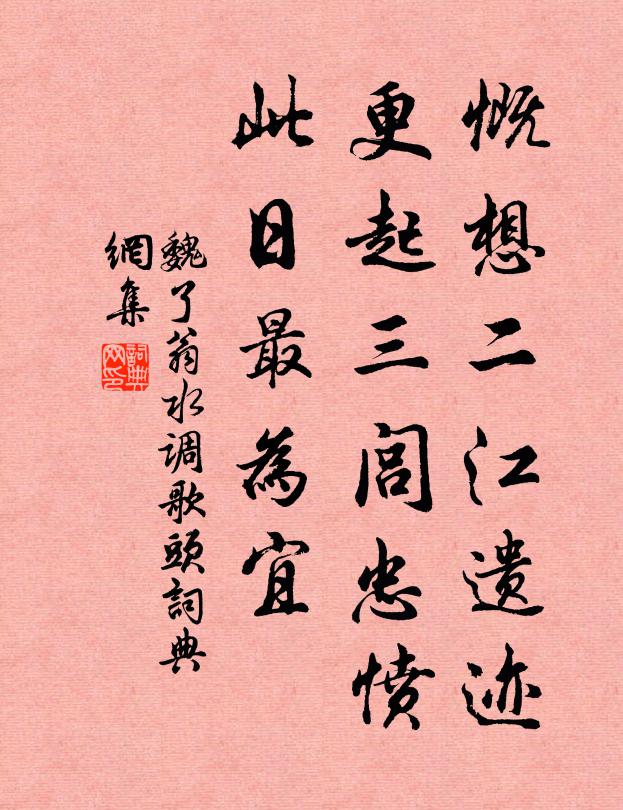 慨想二江遗迹
更起三闾忠愤
此日最為宜
魏了翁水调歌頭詞典
網集
詞典
网印